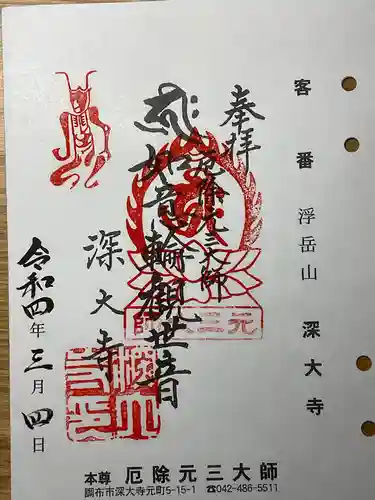 客番 浮岳山 深大寺
奉拝
厄除元三大師
如意輪觀世音
深大寺
令和四年三月四日
元三大師
本尊 厄除元三大師
調布市深大寺元町5-15-1 ☎042-486-5511